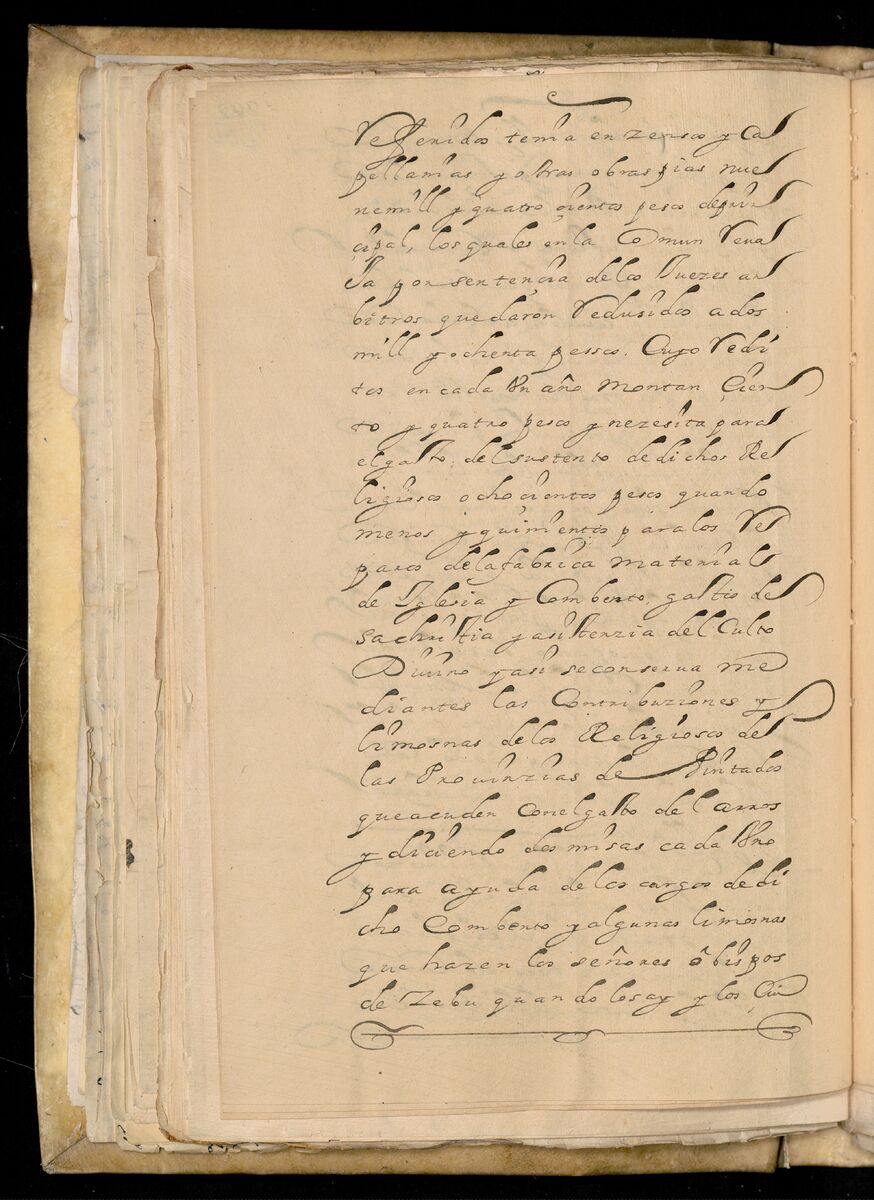 Referidos tenia en zensos y Ca
pellanias y otras obras pias nue
ve mill y quatro çientos pesos deprin
çipal, los quales en la Comun Reva
Ja por sentencia de los Juezes ar
bitros quedaron Redusidos a dos
mill y ochenta pessos. Cuyo Redi
tos en cada Vn año montan Çien
to y quatro pesos y nezesita para
el gasto, del sustento de dichos Re
ligiosos ochoçientos pesos quando
menos y quinientos para los Re
paros de la fabrica material
de Iglesia y Combento, gastto de
sachristia y asistenzia del Culto
Diuino y asi se conserua me
diantes las Contribuziones y
limosnas de los Religiosos de
las Prouinzias de Pintados
que acuden con el gasto del arros
y diciendo dos misas cada Vno
para ayuda de los cargos de di
cho Combento y algunas limosnas
que hazen los señores obispos
de Zebu quando los ay y los Çiu